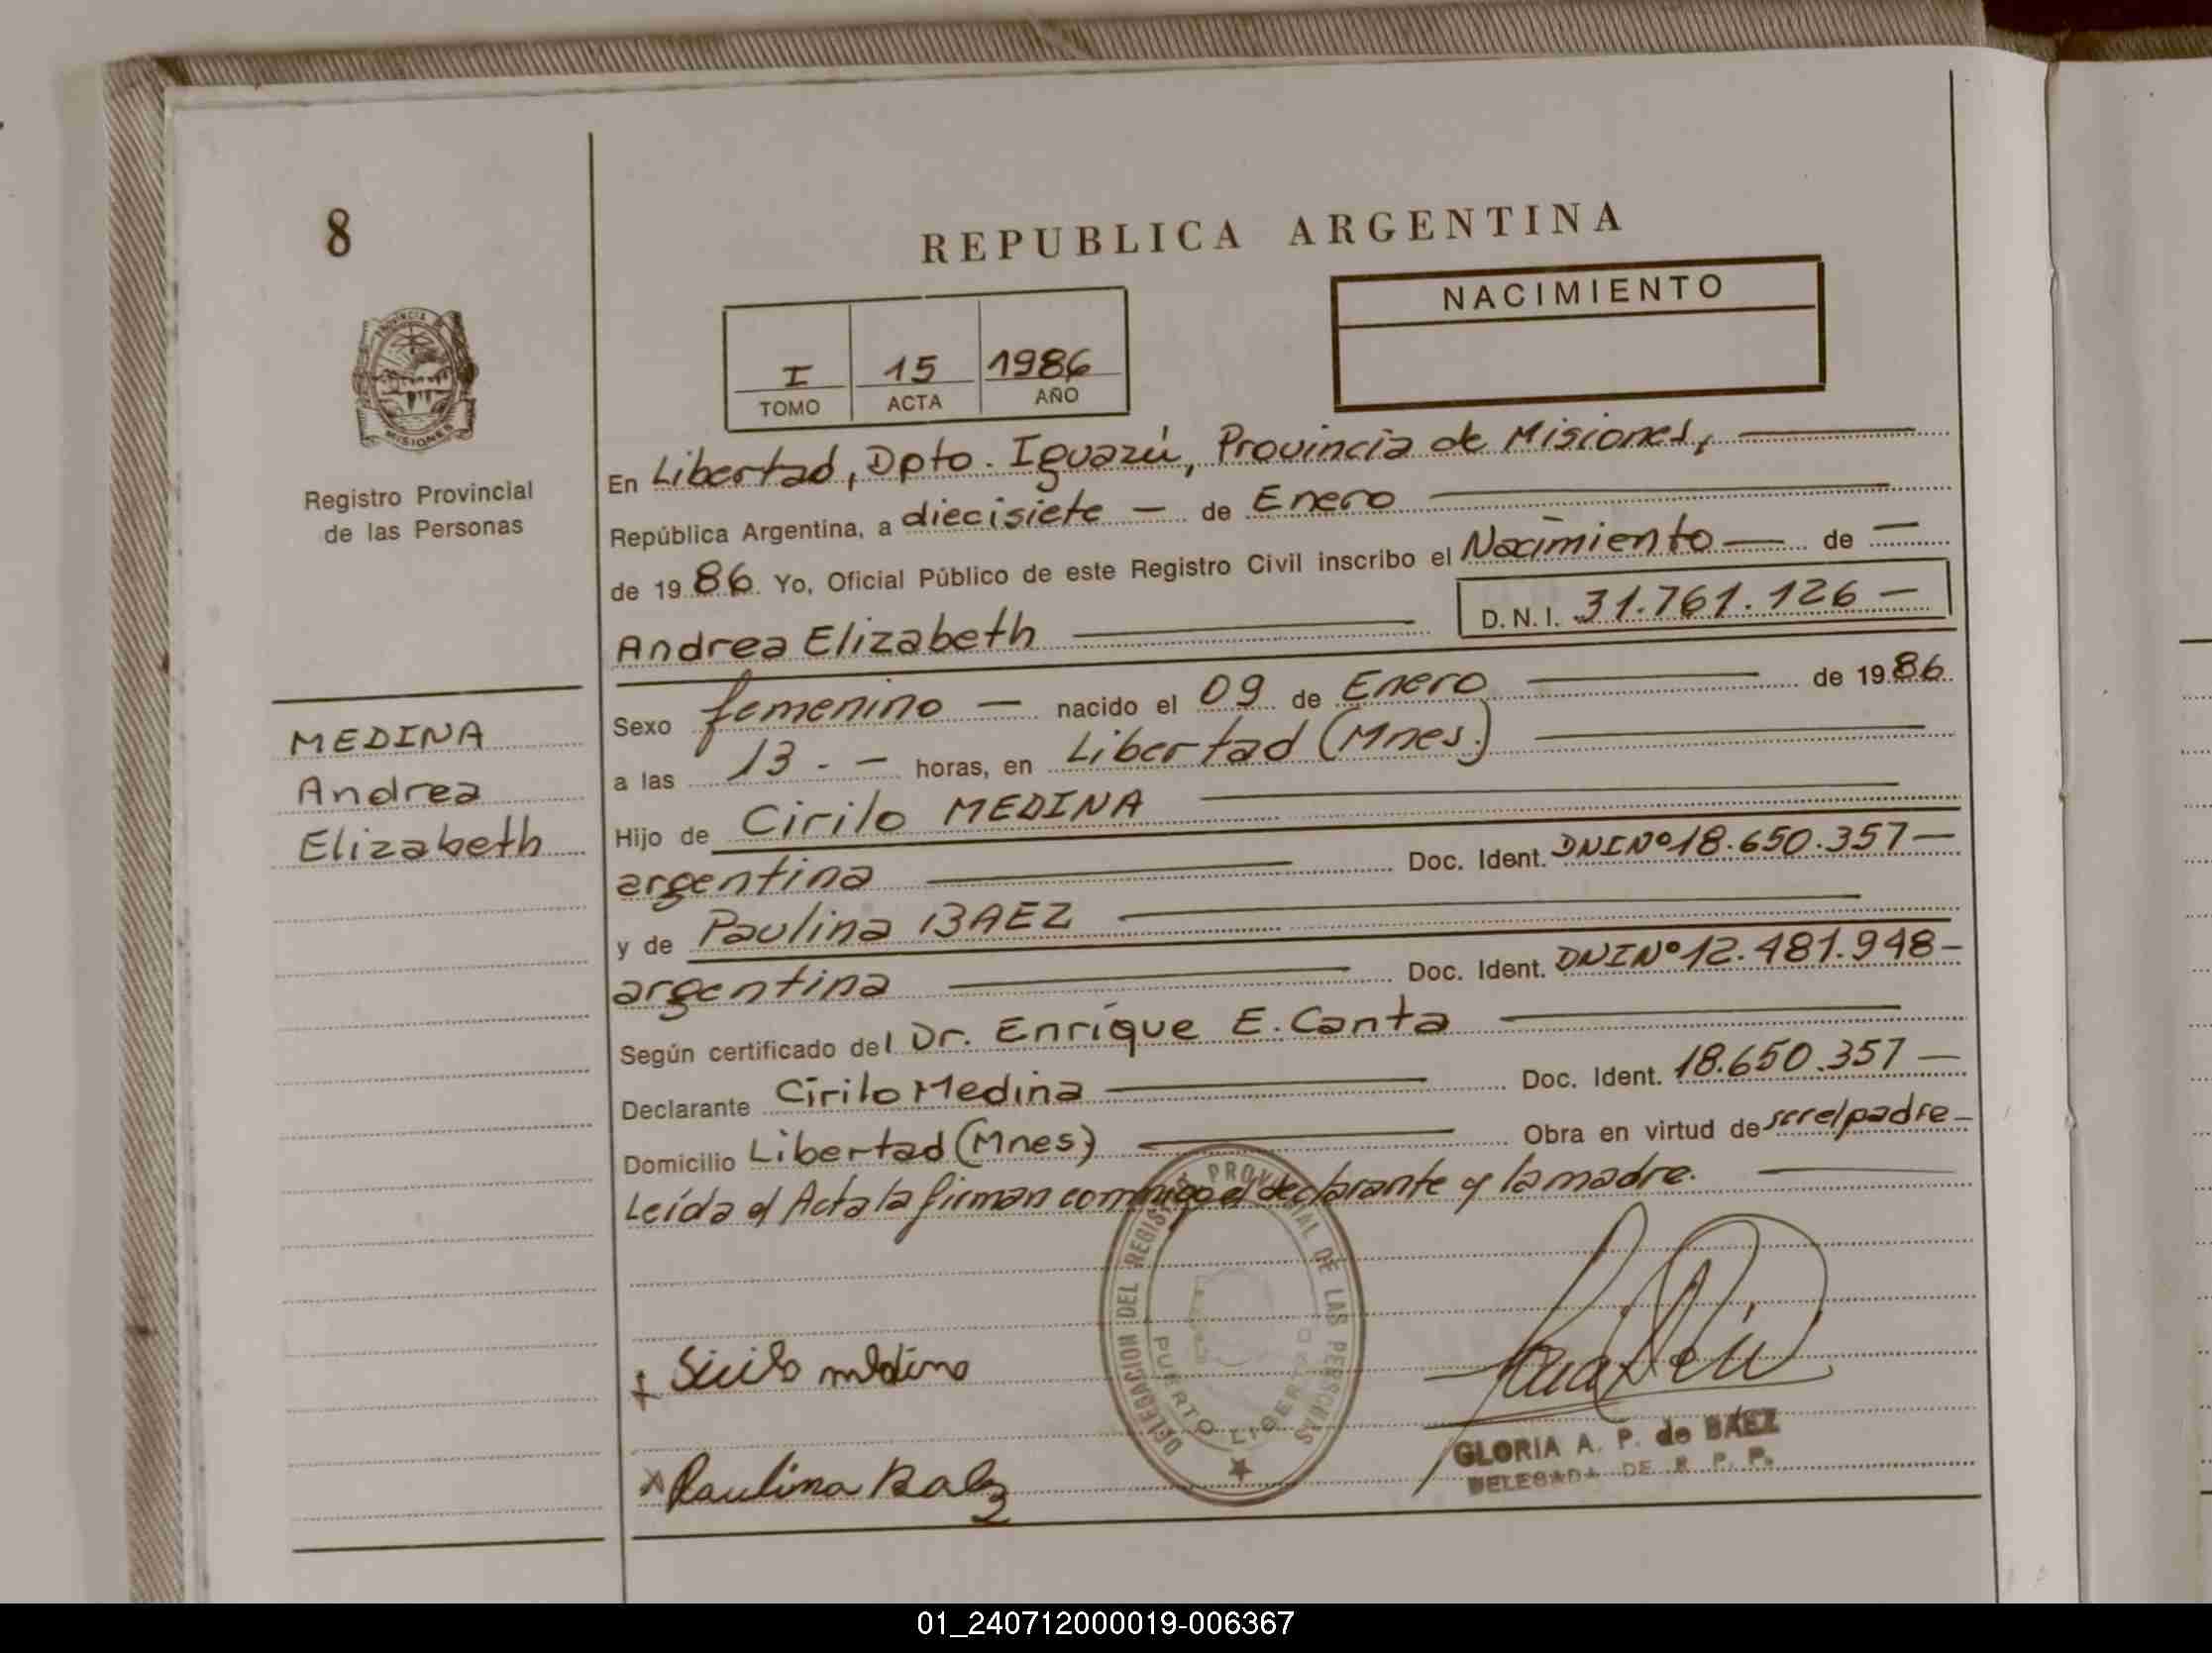 8
REPUBLICA ARGENTINA
NACIMIENTO
I 15 1986
TOMO ACTA AÑO
PROVINCIA DE
MISIONES
Registro Provincial
de las Personas
En Libertad, Dpto. Iguazú, Provincia de Misiones,
República Argentina, a diecisiete — de Enero
de 1986. Yo, Oficial Público de este Registro Civil inscribo el Nacimiento — de —
Andrea Elizabeth — D.N.I. 31.761.126 —
MEDINA
Andrea
Elizabeth
Sexo femenino — nacido el 09 de Enero — de 1986.
a las 13.- — horas, en Libertad (Mnes.)
Hijo de Cirilo MEDINA
argentina — Doc. Ident. DNI Nº 18.650.357 —
y de Paulina BAEZ
argentina — Doc. Ident. DNI Nº 12.481.948 —
Según certificado del Dr. Enrique E. Canta
Declarante Cirilo Medina — Doc. Ident. 18.650.357 —
Domicilio Libertad (Mnes) — Obra en virtud de ser el padre —
Leída el Acta la firman conmigo el declarante y la madre. —
DELEGACION DEL REGISTRO PROVINCIAL DE LAS PERSONAS
PUERTO LIBERTAD
Sirilo medina
Paulina Baez
GLORIA A. P. de BAEZ
DELEGADA DE R. P. P.
01_240712000019-006367